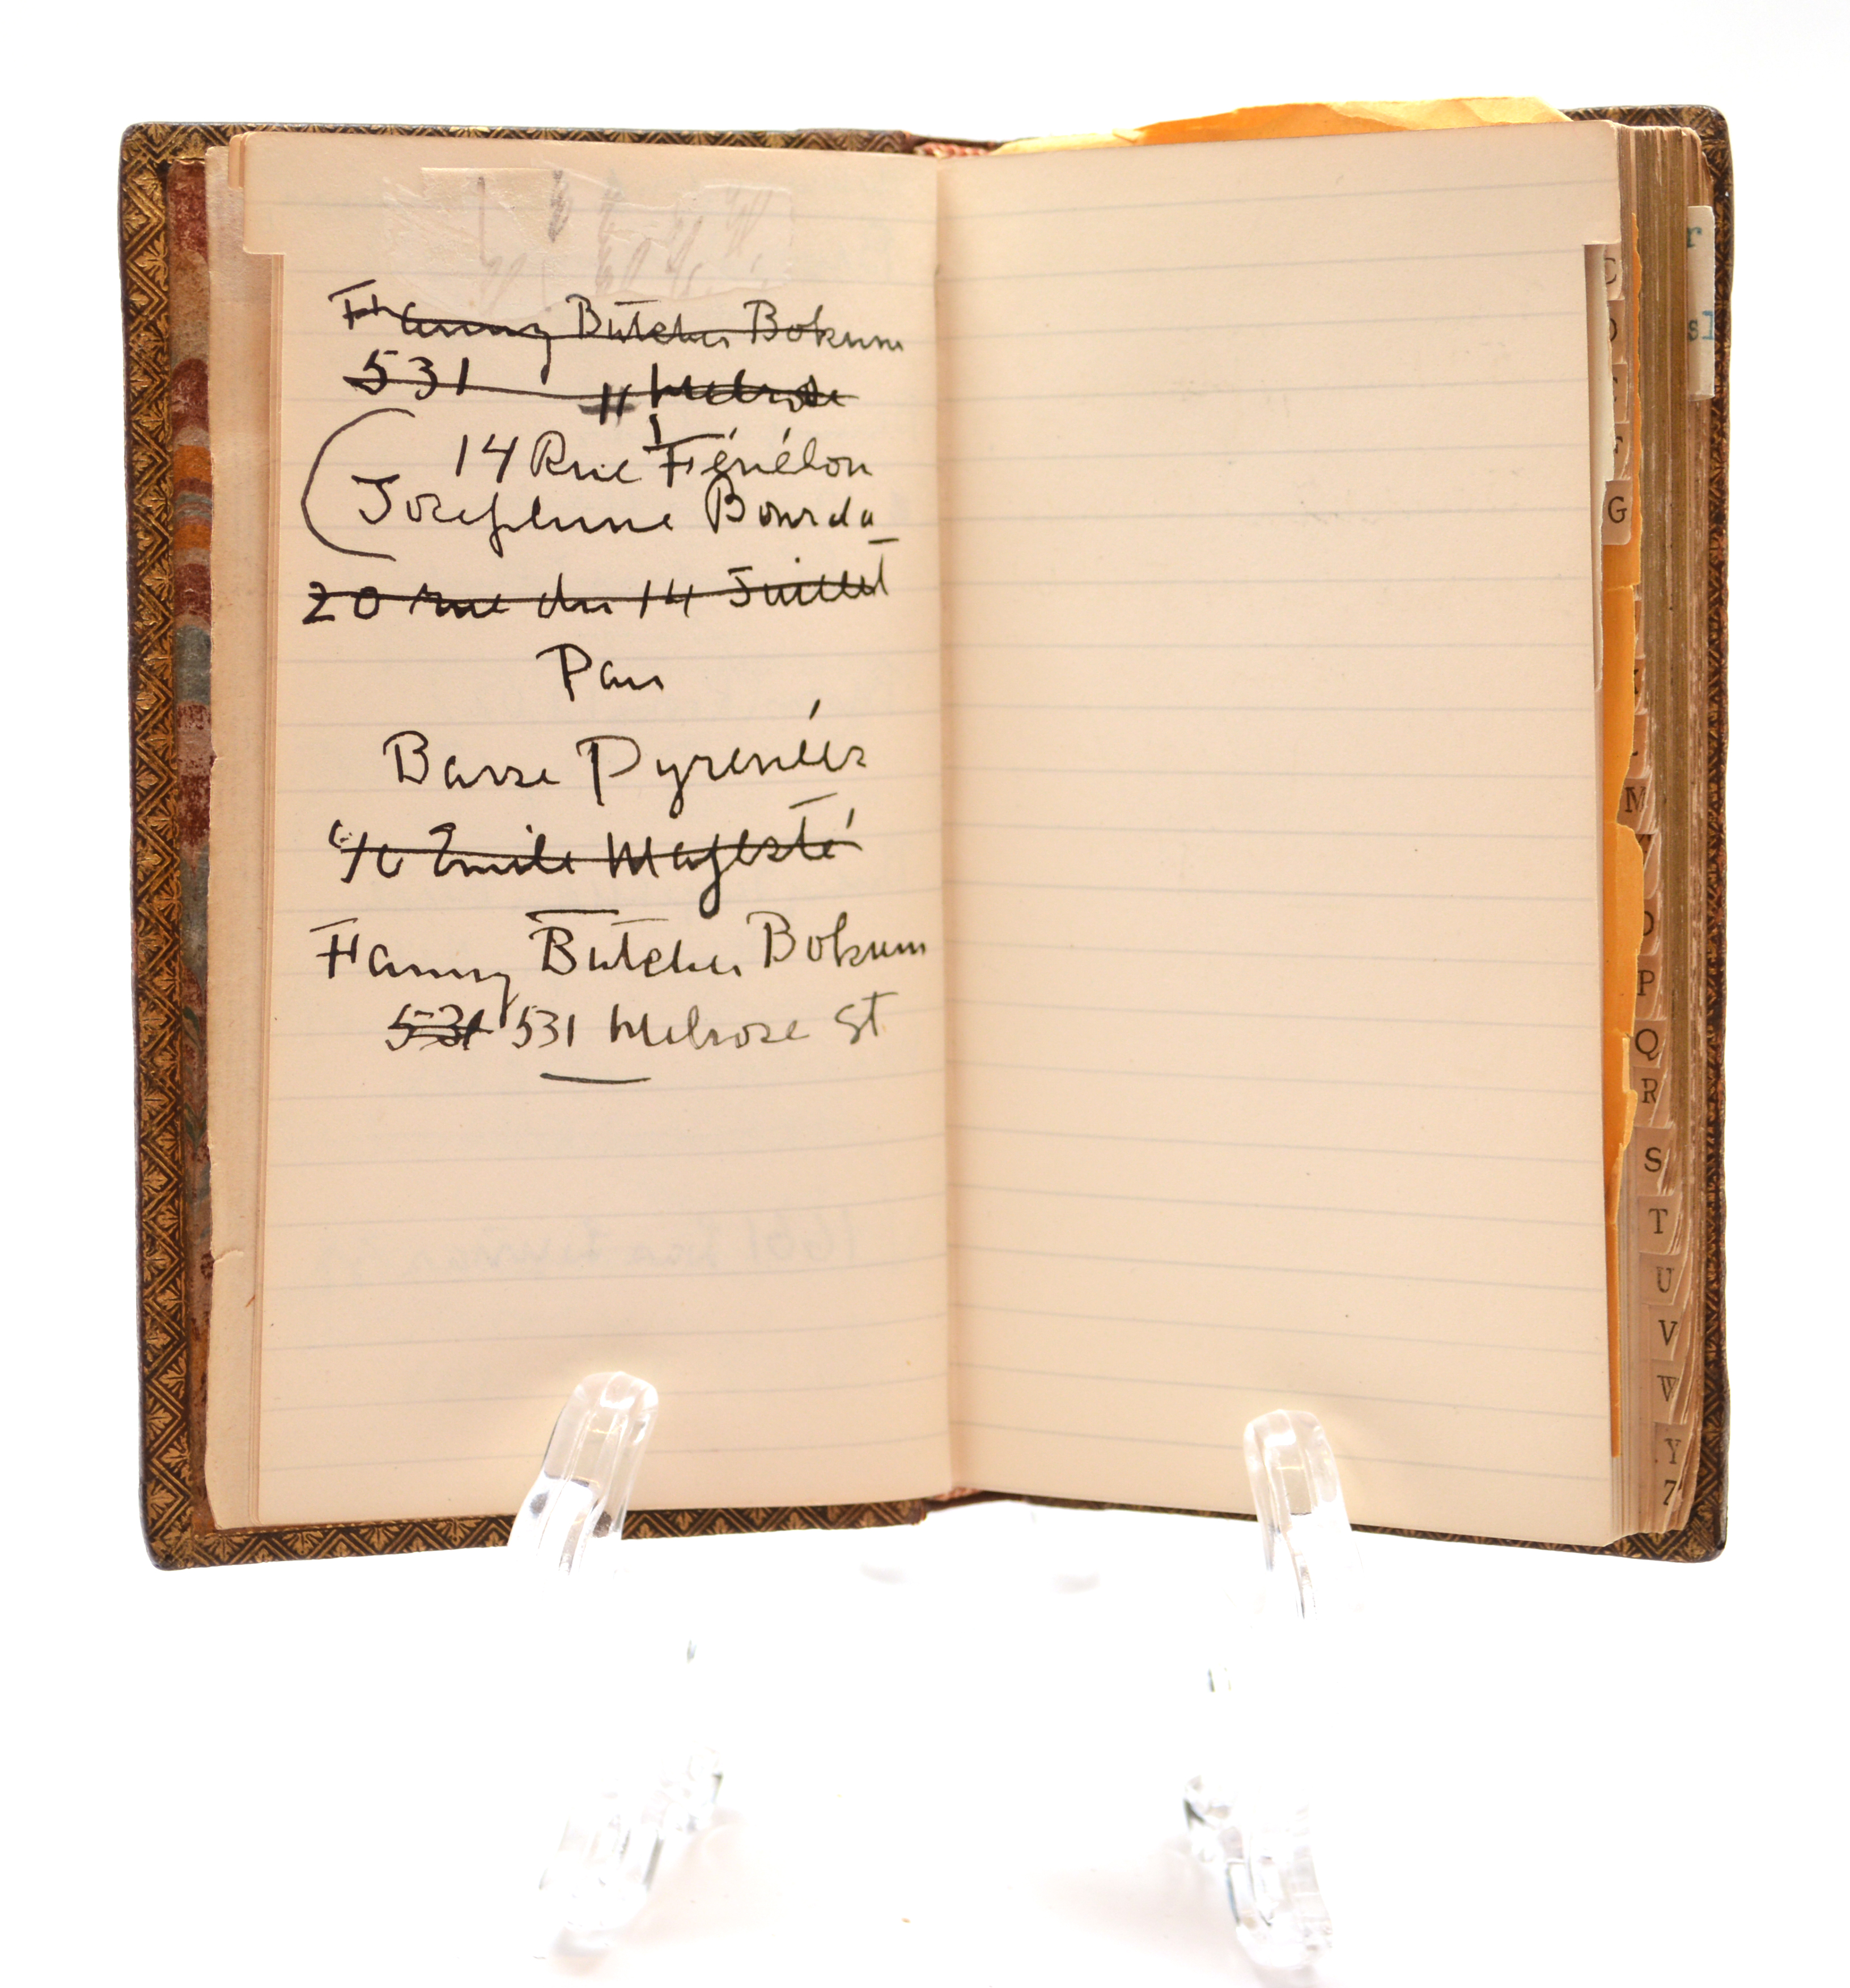 Fanny Butcher Bokum
531 Melrose
14 Rue Fénélon
Josephine Bourda
20 rue du 14 Juillet
Pau
Basse Pyrenées
c/o Emile Majesté
Fanny Butcher Bokum
531 531 Melrose St
C
G
M
O
P
Q
R
S
T
U
V
W
Y
Z